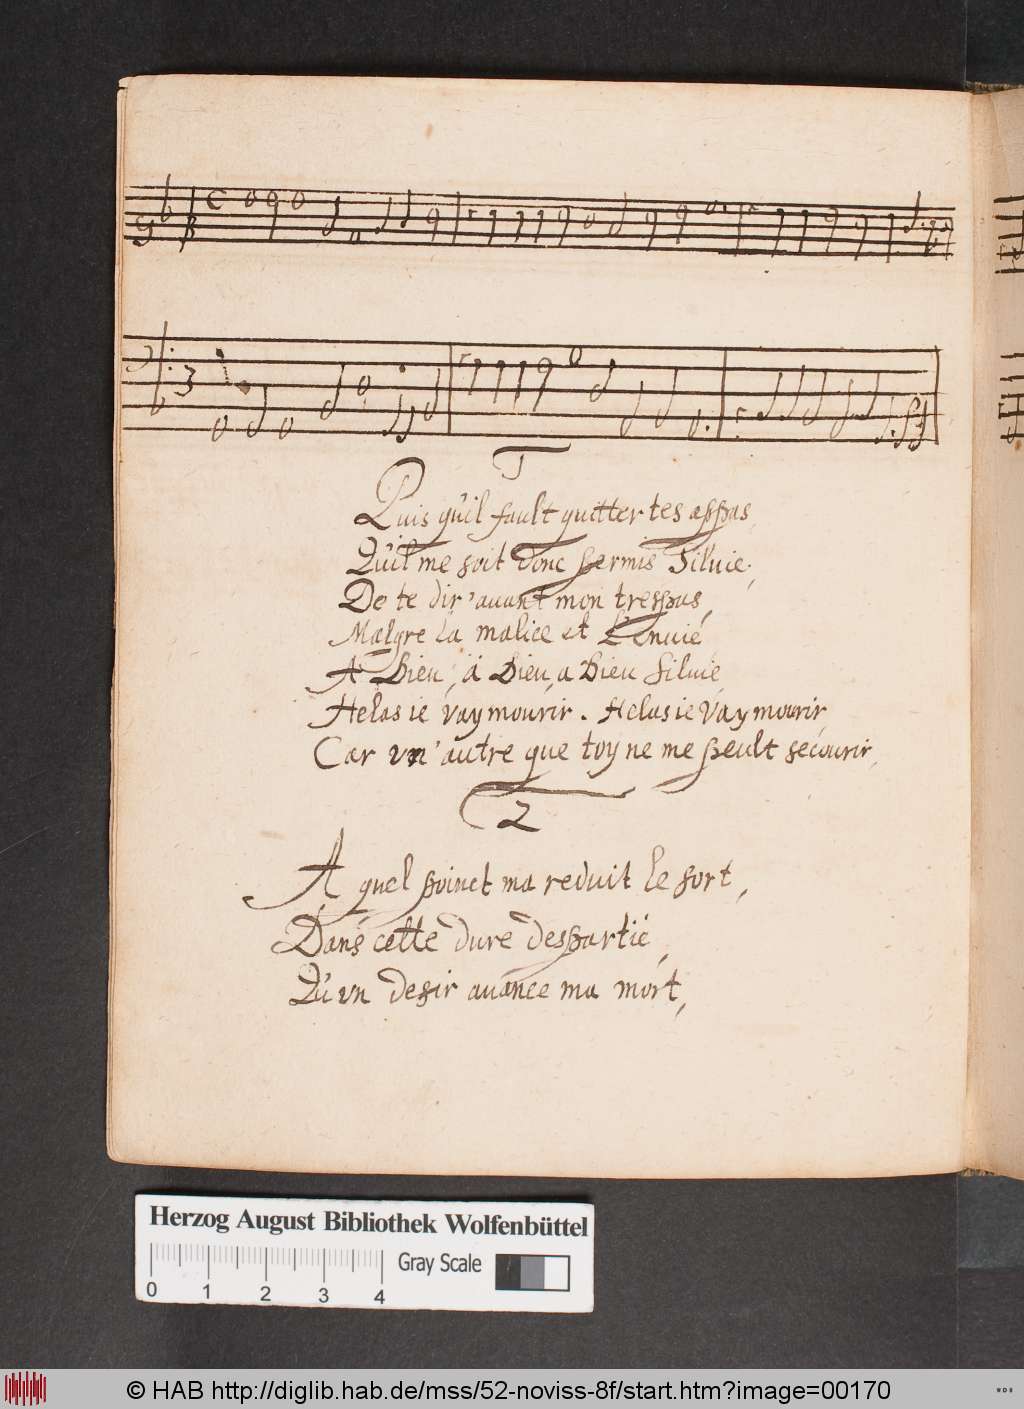 C
3
1
Puis qu'il fault quitter tes appas,
Qu'il me soit donc permis Siluie,
De te dir'auant mon trespas,
Malgre la malice et L'enuie
A Dieu, à Dieu, a Dieu Siluie,
Helas ie vay mourir. Helas ie vay mourir
Car vn'autre que toy ne me peult secourir,
2
A quel poinct ma reduit le sort,
Dans cette dure despartie,
Qu'vn desir auance ma mort,
Herzog August Bibliothek Wolfenbüttel
Gray Scale
0 1 2 3 4
© HAB http://diglib.hab.de/mss/52-noviss-8f/start.htm?image=00170